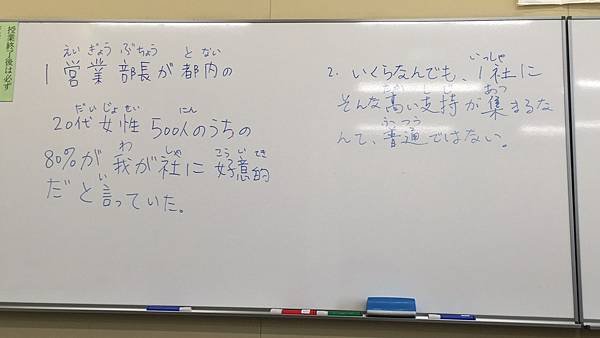 授業終了後は必ず
えいぎょう ぶちょう と ない
1 営業部長が都内の
だいじょせい にん
20代女性500人のうちの
わ しゃ こうい てき
80%が我が社に好意的
い
だと言っていた。
いっしゃ
2. いくらなんでも、1社に
たか しじ あつ
そんな高い支持が集まるな
ふつう
んて、普通ではない。